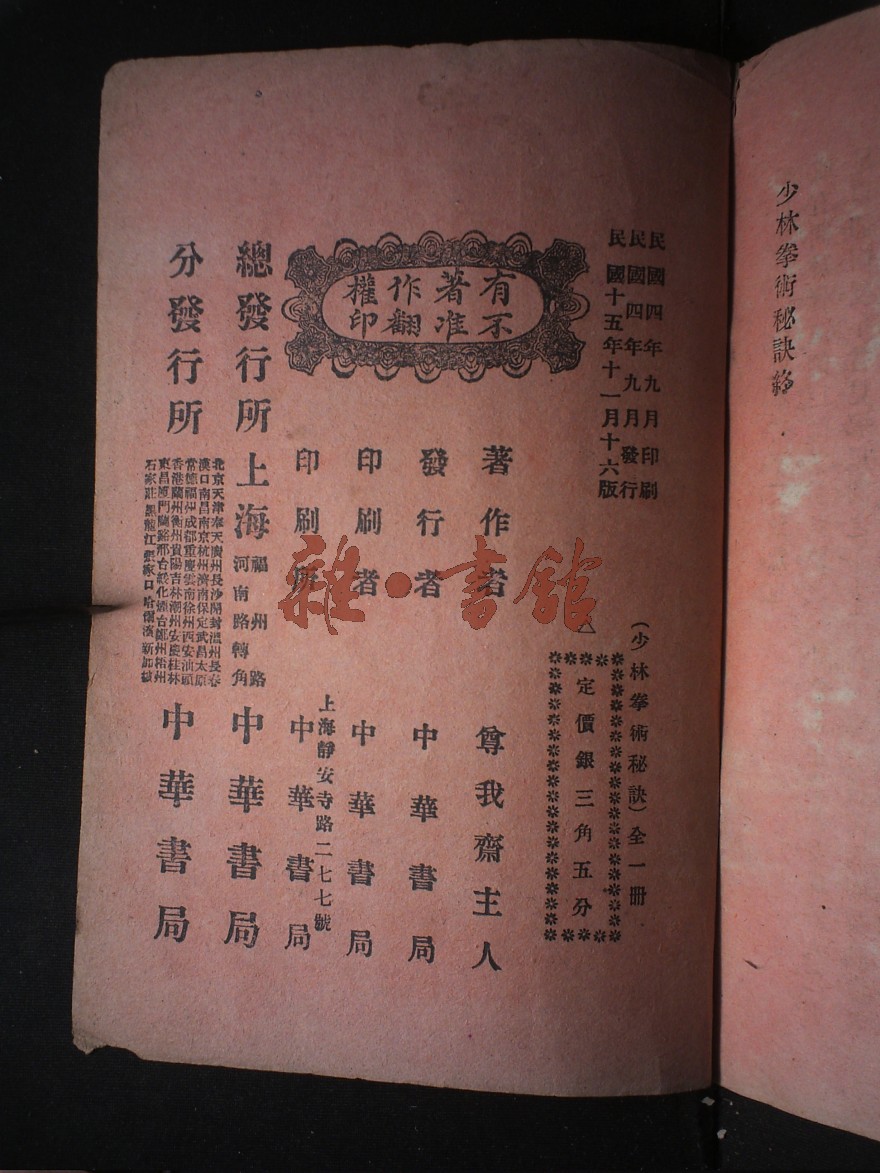 少林拳術秘訣終
民國四年九月印刷
民國四年九月發行
民國十五年十一月十六版
(少林拳術秘訣)全一冊
定價銀三角五分
有著作權
不准翻印
著作者 尊我齋主人
發行者 中華書局
印刷者 中華書局
上海靜安寺路二七七號
印刷所 中華書局
總發行所 上海 福州路河南路轉角 中華書局
分發行所
北京天津奉天廣州長沙開封溫州長春
漢口南昌南京杭州濟南保定武昌太原
常德福州成都重慶雲南徐州西安汕頭
香港蘭州衡州貴陽吉林潮州安慶桂林
東昌廈門蘭谿邢台綏化煙台鄭州梧州
石家莊黑龍江張家口哈爾濱新加坡
中華書局
雜·書館